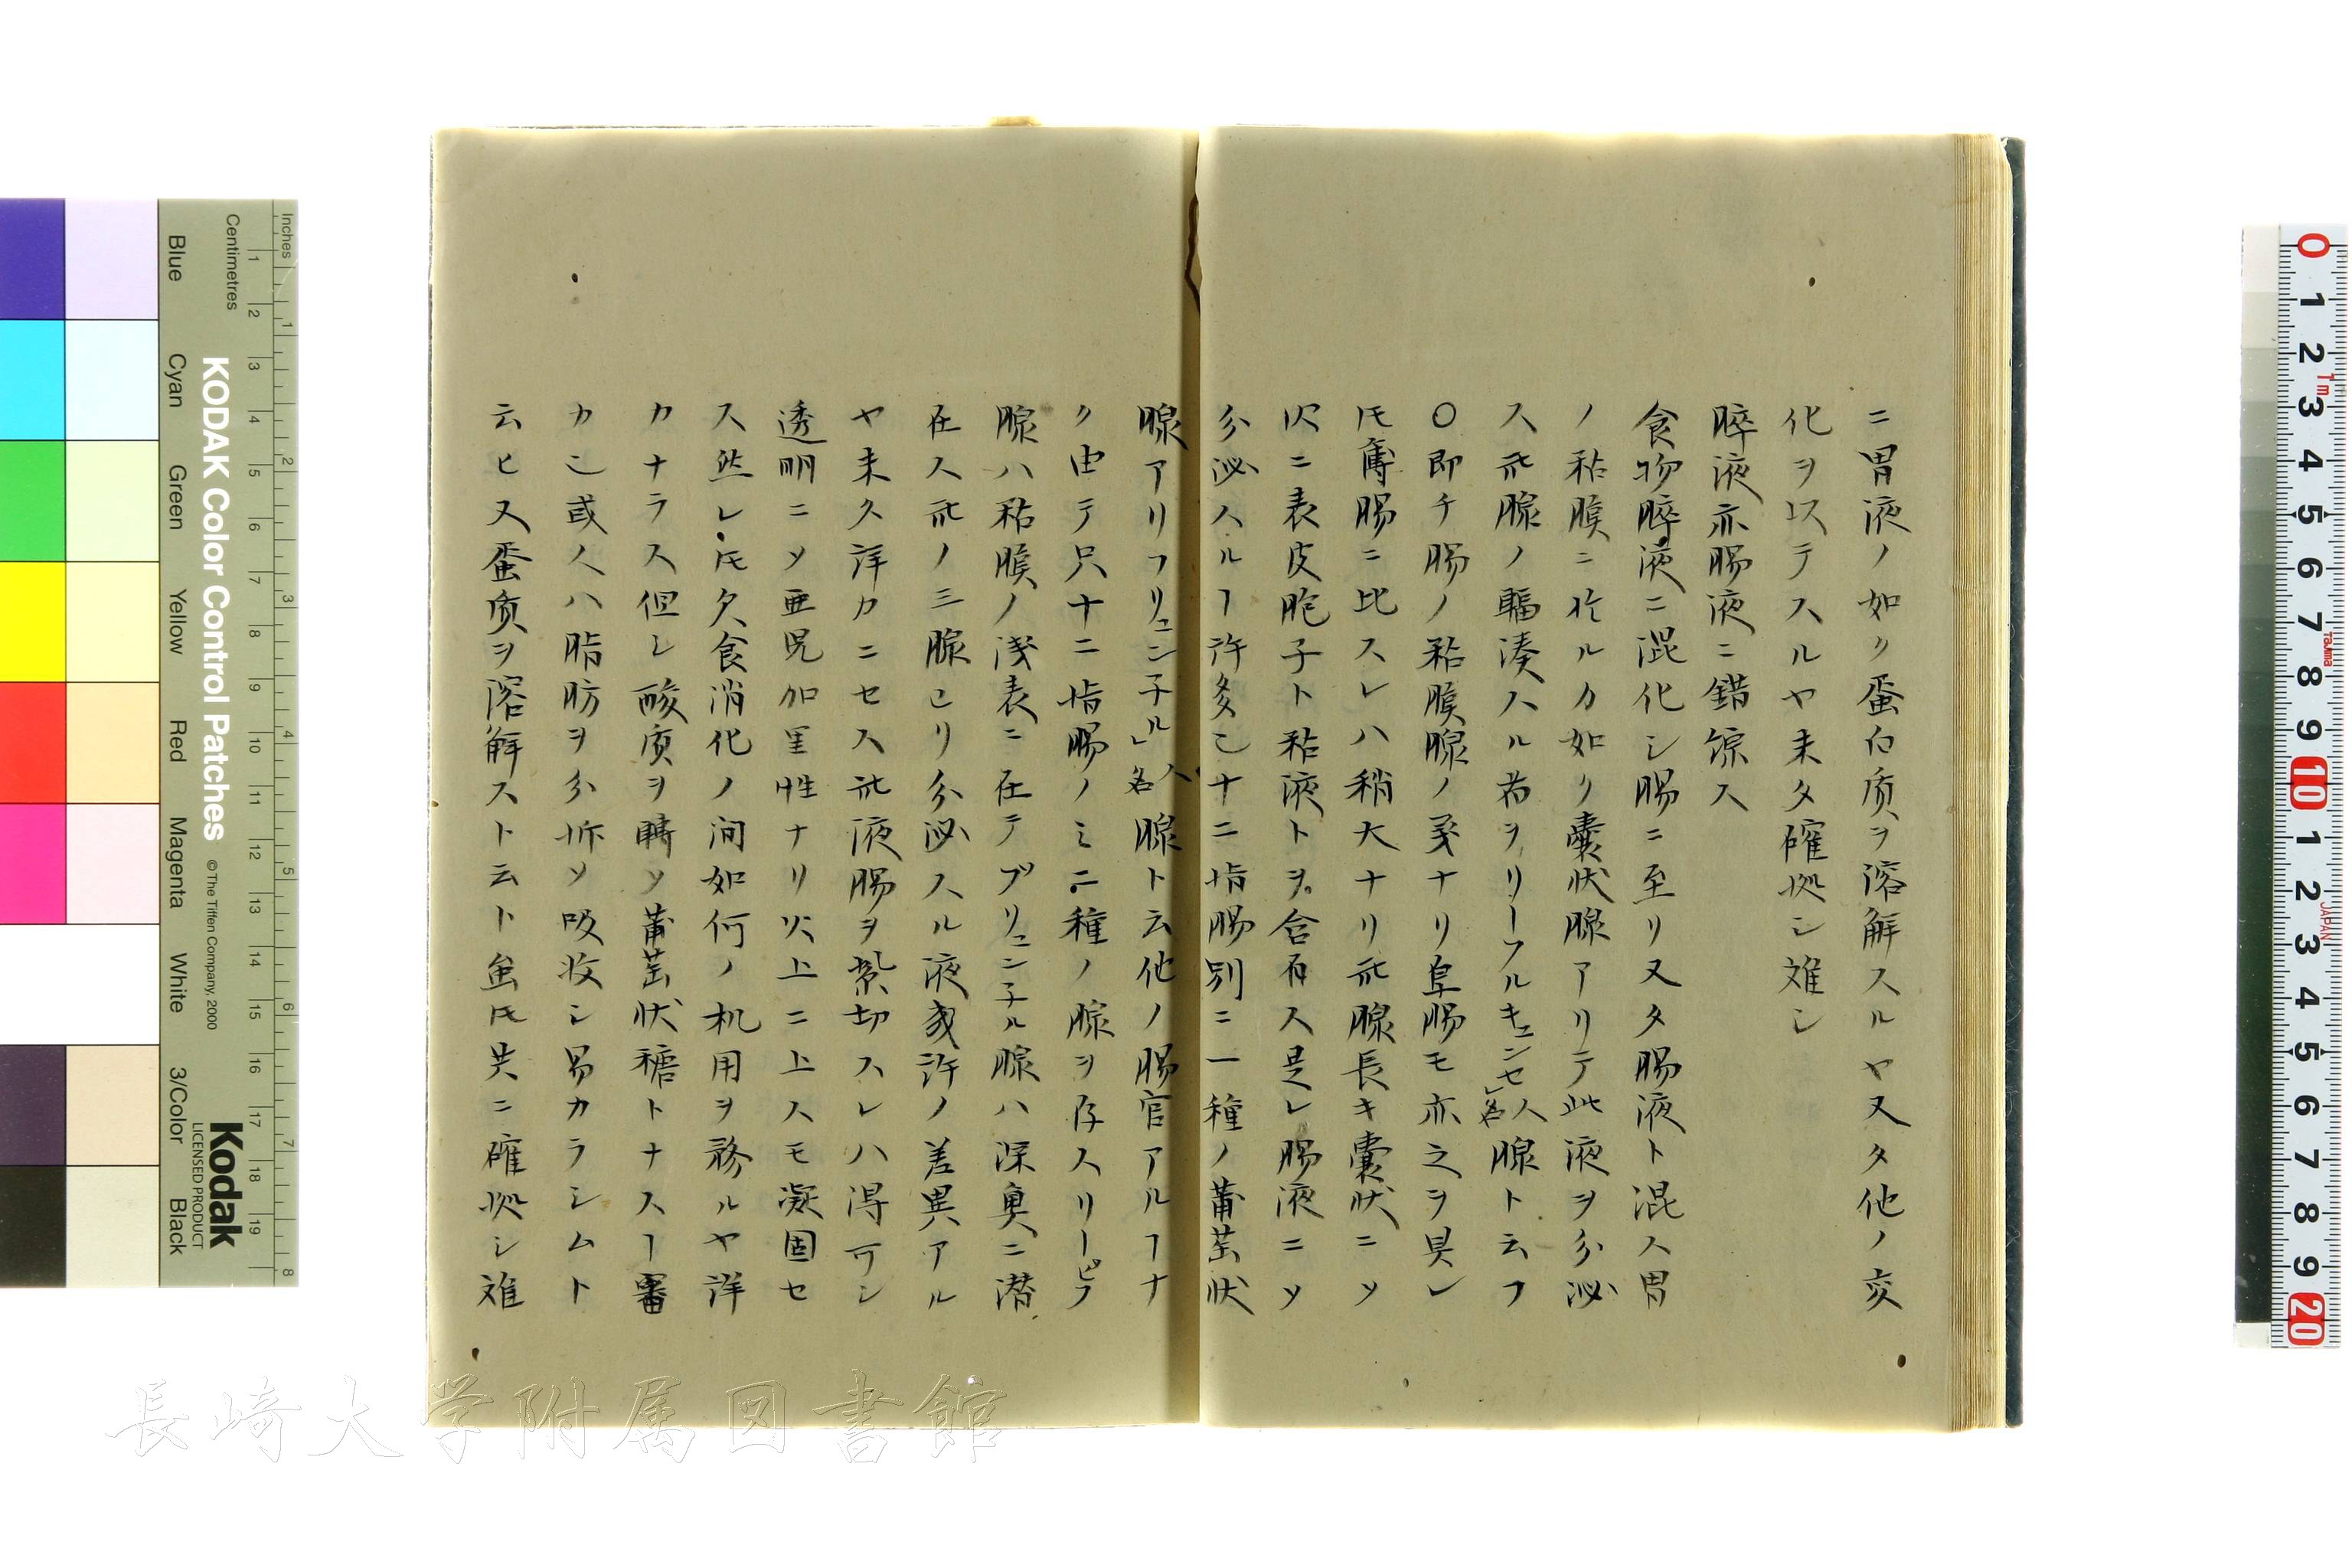 ニ胃液ノ如ク蛋白质ヲ溶解スルヤ又タ他ノ交
化ヲ以テスルヤ未タ確拠シ难シ
膵液亦腸液ニ錯綜ス
食物膵液ニ混化シ腸ニ至リ又タ腸液ト混ス胃
ノ粘膜ニ於ルカ如ク嚢状腺アリテ此液ヲ分泌
ス此腺ノ輻湊スル者ヲリーフルキュンセ」人名腺ト云フ
〇即チ腸ノ粘膜腺ノ義ナリ阜腸モ亦之ヲ具レ
𪜈薦腸ニ比スレハ稍大ナリ此腺長キ嚢状ニソ
内ニ表皮胞子ト粘液トヲ含有ス是レ腸液ニソ
分泌スルヿ許多シ十二指腸別ニ一種ノ葡萄状
腺アリフリュン子ル」人名腺ト云他ノ腸官アルヿナ
ク由テ只十二指腸ノミニ種ノ腺ヲ存スリーピフ
腺ハ粘膜ノ浅表ニ在テブリュン子ル腺ハ深奥ニ潜
在ス此ノ三腺ヨリ分泌スル液或許ノ差異アル
ヤ未久詳カニセス此液腸ヲ緊切スレハ得可シ
透明ニソ亜児加里性ナリ火上ニ上スモ凝固セ
ス然レ𪜈久食消化ノ间如何ノ机用ヲ務ルヤ詳
カナラス但シ酸质ヲ轉ソ葡萄状糖トナスヿ審
カニ或人ハ脂肪ヲ分拆ソ吸收シ易カラシムト
云ヒ又蛋质ヲ溶解スト云ト虽𪜈共ニ確拠シ难
Inches
Centimetres
1 2 3 4 5 6 7 8 9 10 11 12 13 14 15 16 17 18 19
1 2 3 4 5 6 7 8
Blue
Cyan
Green
Yellow
Red
Magenta
White
3/Color
Black
KODAK Color Control Patches
© The Tiffen Company, 2000
Kodak
LICENSED PRODUCT
0 1 2 3 4 5 6 7 8 9 10 1 2 3 4 5 6 7 8 9 20
7m
Tajima
JAPAN
長崎大学附属図書館